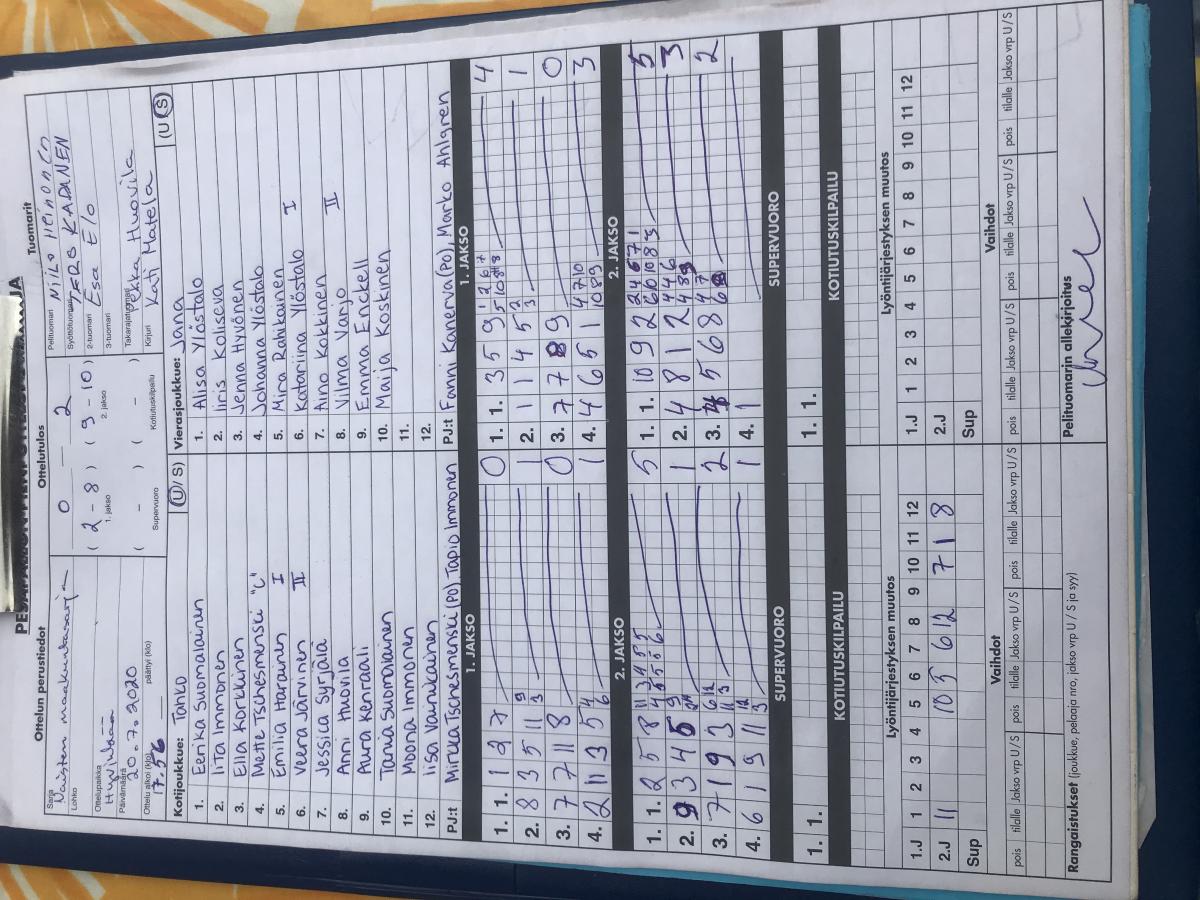 Ottelun perustiedot
Sarja
Naisten maakuntasarja
Lohko
Ottelupaikka
Hyvinkää
Päivämäärä
20.7.2020
Ottelu alkoi (klo)
17.56
päättyi (klo)
Ottelutulos
0 – 2
( 2 – 8 ) ( 9 – 10 )
1. jakso
2. jakso
( – ) ( – )
Supervuoro
Kotiutuskilpailu
Tuomarit
Pelituomari
Syöttötuomari
2-tuomari Esa E/o
3-tuomari
Takarajatuomari Pekka Huovila
Kirjuri Kati Matela
Kotijoukkue: Tahko (U/ S)
1. Eerika Suomalainen
2. Iita Immonen
3. Ella Korkkinen
4. Mette Tschesmenski "C"
5. Emilia Harainen I
6. Veera Järvinen II
7. Jessica Syrjälä
8. Anni Huovila
9. Aura Kenraali
10. Taina Suomalainen
11. Moona Immonen
12. Iisa Vainikainen
PJ:t Mirkka Tschesmenski (PO) Tapio Immonen
Vierasjoukkue: Jana (U S)
1. Alisa Ylöstalo
2. Iiris Koliseva
3. Jenna Hyvönen
4. Johanna Ylöstalo
5. Mira Rahikainen
6. Katariina Ylöstalo I
7. Aino Kokkinen
8. Vilma Varjo II
9. Emma Enckell
10. Maija Koskinen
11.
12.
PJ:t Fanni Kanerva (PO), Marko Ahlgren
1. JAKSO
1. 1. 1 2 7 0
2. 8 3 5 11 9 3 1
3. 7 7 11 8 0
4. 2 11 3 5 4 6 1
1. JAKSO
1. 1. 3 5 9 4
2. 1 1 4 5 2 3 1
3. 7 7 8 9 0
4. 1 4 6 5 1 4 7 10 10 8 9 3
2. JAKSO
1. 1. 2 5 8 5
2. 9 3 4 5 1
3. 7 1 9 3 6 12 11 3 2
4. 6 1 9 11 12 3 1
2. JAKSO
1. 1. 10 9 2 5
2. 4 8 1 2 3
3. 5 6 8 2
4. 1
SUPERVUORO
1. 1.
SUPERVUORO
1. 1.
KOTIUTUSKILPAILU
KOTIUTUSKILPAILU
Lyöntijärjestyksen muutos
1 2 3 4 5 6 7 8 9 10 11 12
1.J
2.J 11 10 3 6 12 7 1 8
Sup
Lyöntijärjestyksen muutos
1 2 3 4 5 6 7 8 9 10 11 12
1.J
2.J
Sup
Vaihdot
pois tilalle Jakso vrp U / S pois tilalle Jakso vrp U / S pois tilalle Jakso vrp U / S
Vaihdot
pois tilalle Jakso vrp U / S pois tilalle Jakso vrp U / S pois tilalle Jakso vrp U / S
Rangaistukset (joukkue, pelaaja nro, jakso vrp U / S ja syy)
Pelituomarin allekirjoitus